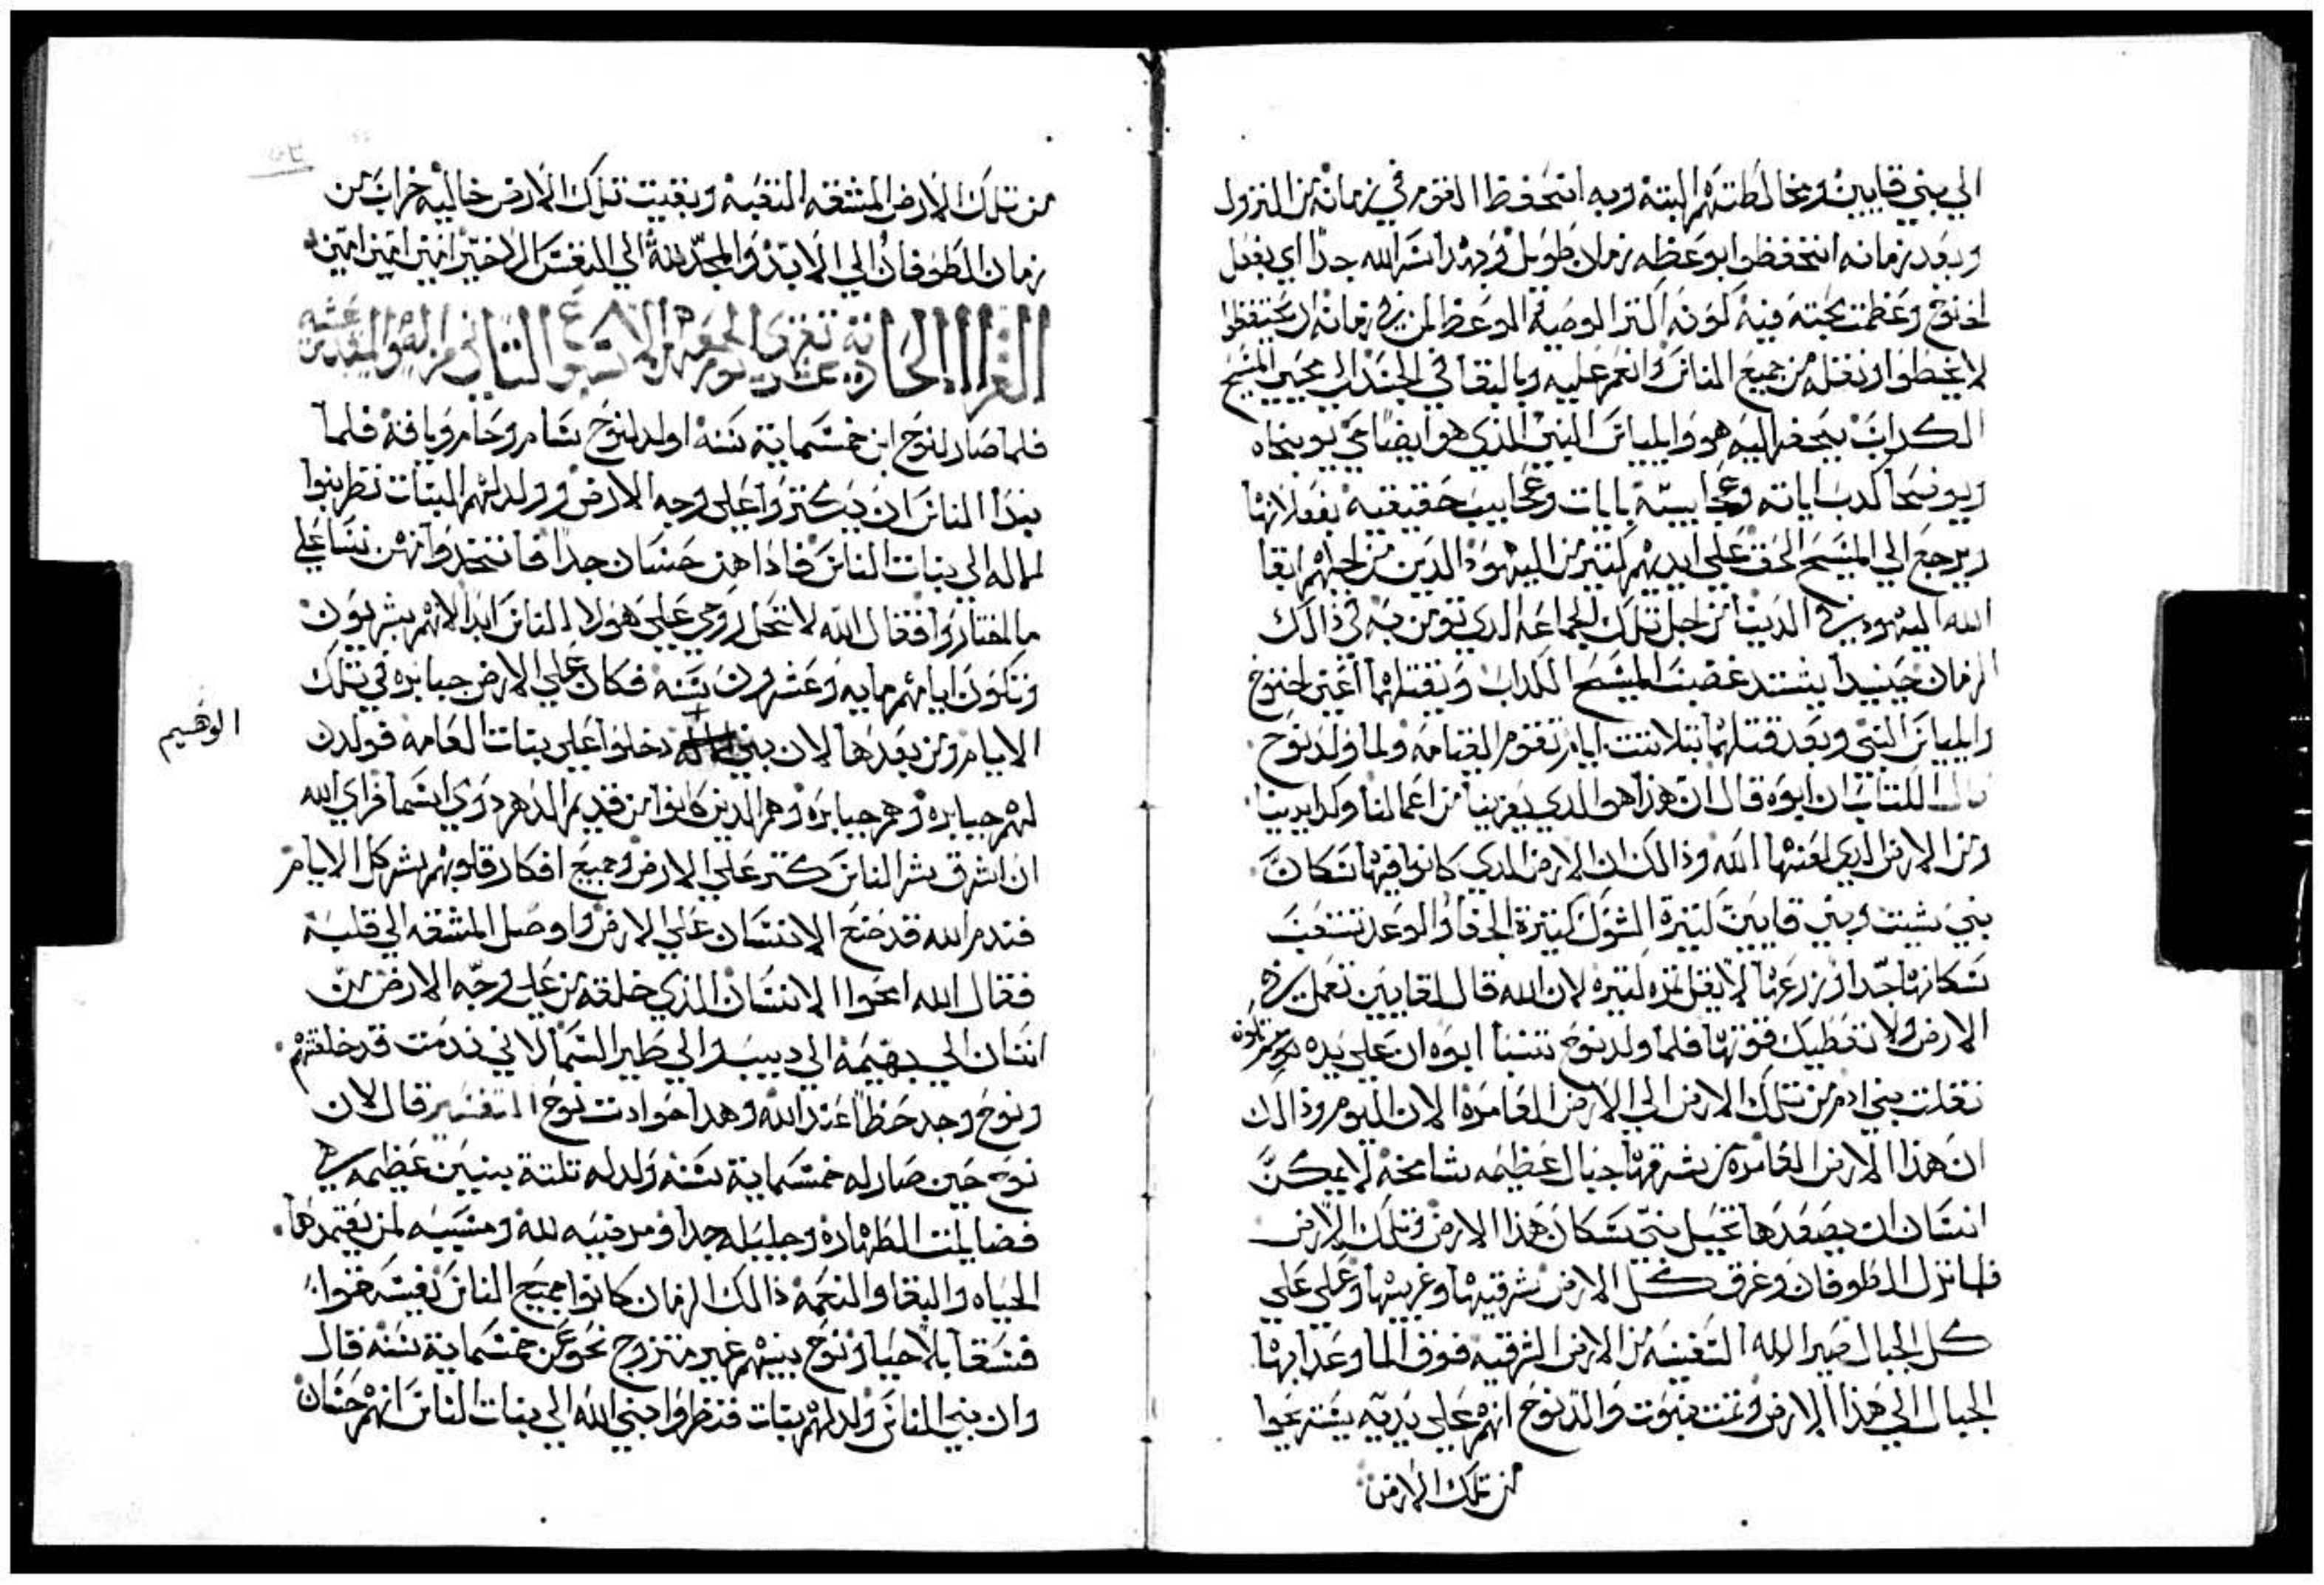 الي بني قايين ومخالطتهم البتة وبه انتحفظ القوم في زمانه من النزول
وبعد زمانه انتحفظوا بوعظه زمان طويل وبهدا اسر الله جدا اي بفعل
اخنوخ وعظمت محبته فيه لكونه اكتر الوصية والوعظ لمن في زمانه ان يحتفظوا
لا يخطوا ونقله من جميع الناس وانعم عليه وبالبقا في الجند الي مجي المسيح
الكداب يتجه اليه هو والياس النبي الدي هو ايضا حي يوبخاه
ويوضحا كدب اياته وعجايبه بايات وعجايب حقيقيه بفعلانها
ويرجع الي المسيح الحق علي ايديهم كتير من اليهود الدين من اجلهم ابقا
الله اليهود في الدنيا من اجل تلك الجماعه الدي تومن به في ذالك
الزمان حينيدا يشتد غضب المسيح الكداب ويقتلهما اعني اخنوخ
والياس النبي وبعد قتلهما بتلاتت ايام تقوم القيامه ولما ولد نوح
قال الكتاب ان ابوه قال ان هدا هو الدي يعزينا من اعمالنا وكد ايدينا
ومن الارض الدي لعنها الله وذالك ان الارض الدي كانوا فيها سكان
بني شيت وبني قايين كتيرة الشوك كتيرة الجفا والوعد تتعب
سكانها جدا ومن زرعها لا يقل نمره كتيره لان الله قال لقايين تعمل في
الارض ولا تعطيك قوتها فلما ولد نوح تنبا ابوه ان علي يده
نقلت بني ادم من تلك الارض الي الارض العامرة الان اليوم وذالك
ان هذا الارض العامره من شرقها جبال عظيمه شامخة لا يمكن
انسان ان يصعدها تحيل بين سكان هذا الارض وتلك الارض
فلما نزل الطوفان وغرق كل الارض شرقيها وغربيها وعلي علي
كل الجبال صير الله السفينه من الارض الشرقيه فوق الما وعدا بها
الجبال الي هذا الارض وتمت نبوت والد نوح انهم علي يديه يستريحوا
من تلك الارض
من تلك الارض المشقه المتعبة وبقيت تلك الارض خاليه خراب من
زمان الطوفان الي الابد والمجد لله الي النفس الاخير امين امين امين
القراة الحادية عشر تقرى يوم الجمعه من الاسبوع التاني من الصوم المقدس
فلما صار لنوح ابن خمسماية سنه اولد لنوح سام وحام ويافة فلما
بدا الناس ان يكتروا علي وجه الارض وولد لهم البنات نظر بنوا
لماله الي بنات الناس فادا هن حسان جدا فاتخدوا منهن نسا علي
ما اختاروا فقال الله لا تحل روحي علي هولا الناس ابدا لانهم بشريون
وتكون ايامهم مايه وعشرون سنه فكان علي الارض جبابره في تلك
الايام ومن بعدها لان بني دخلوا علي بنات العامه فولدن
الوهيم
لهم جبابرة وهم جبابرة وهم الدين كانوا من قديم الدهر دوي اسما فراي الله
ان شر الناس كتر علي الارض وجميع افكار قلوبهم بشر كل الايام
فندم الله قد صنع الانسان علي الارض واوصل المشقه الي قلبه
فقال الله امحوا الانسان الدي خلقه من علي وجه الارض من
انسان الي بهيمة الي دبيب والي طير السما لاني ندمت قد خلقتهم
ونوح وجد حظا عند الله وهدا حوادت نوح التفسير قال لان
نوح حين صار له خمسماية سنه ولد له تلتة بنين عظيمه في
فضايلت الطهارة وجليله جدا ومرضيه لله ومسببه لمن يعتمدها
الحياه والبقا والنعمه ذالك الزمان كانوا جميع الناس
وان بني الناس ولد لهم بنات فنظروا بني الله الي بنات الناس انهم حسان